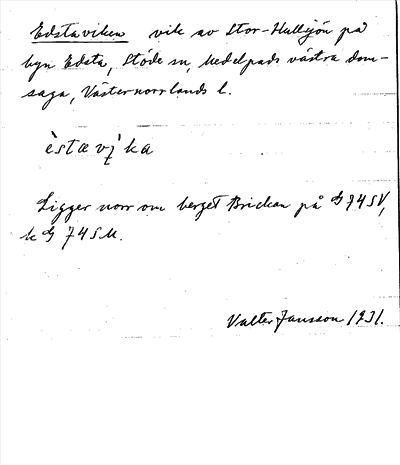 Edstaviken vik av Stor-Hullsjön på
byn Edsta, Stöde sn, Medelpads västra dom-
saga, Västernorrlands l.
èstævika
Ligger norr om berget Brickan på G 74 SV,
k G 74 SU.
Valter Jansson 1931.